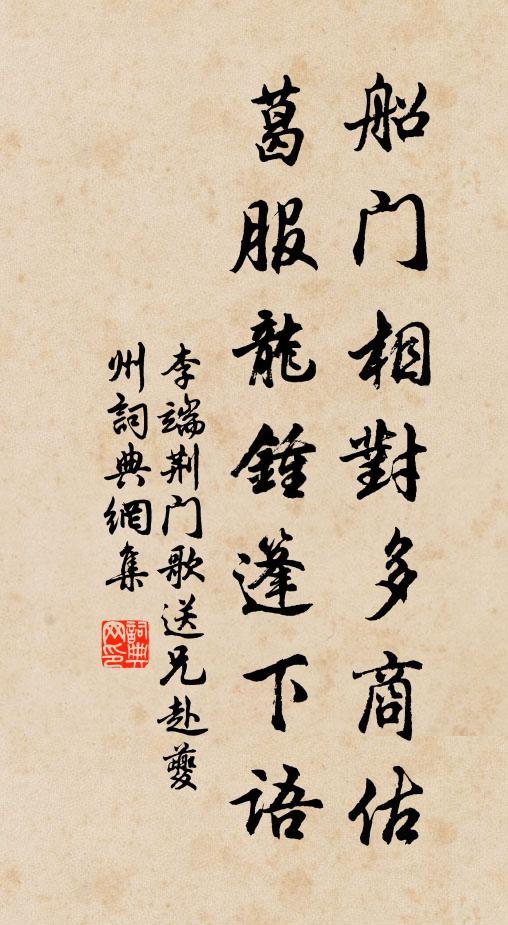 船门相對多商估
葛服龍鍾篷下語
李端荆门歌送兄赴夔
州詞典網集
詞典网印